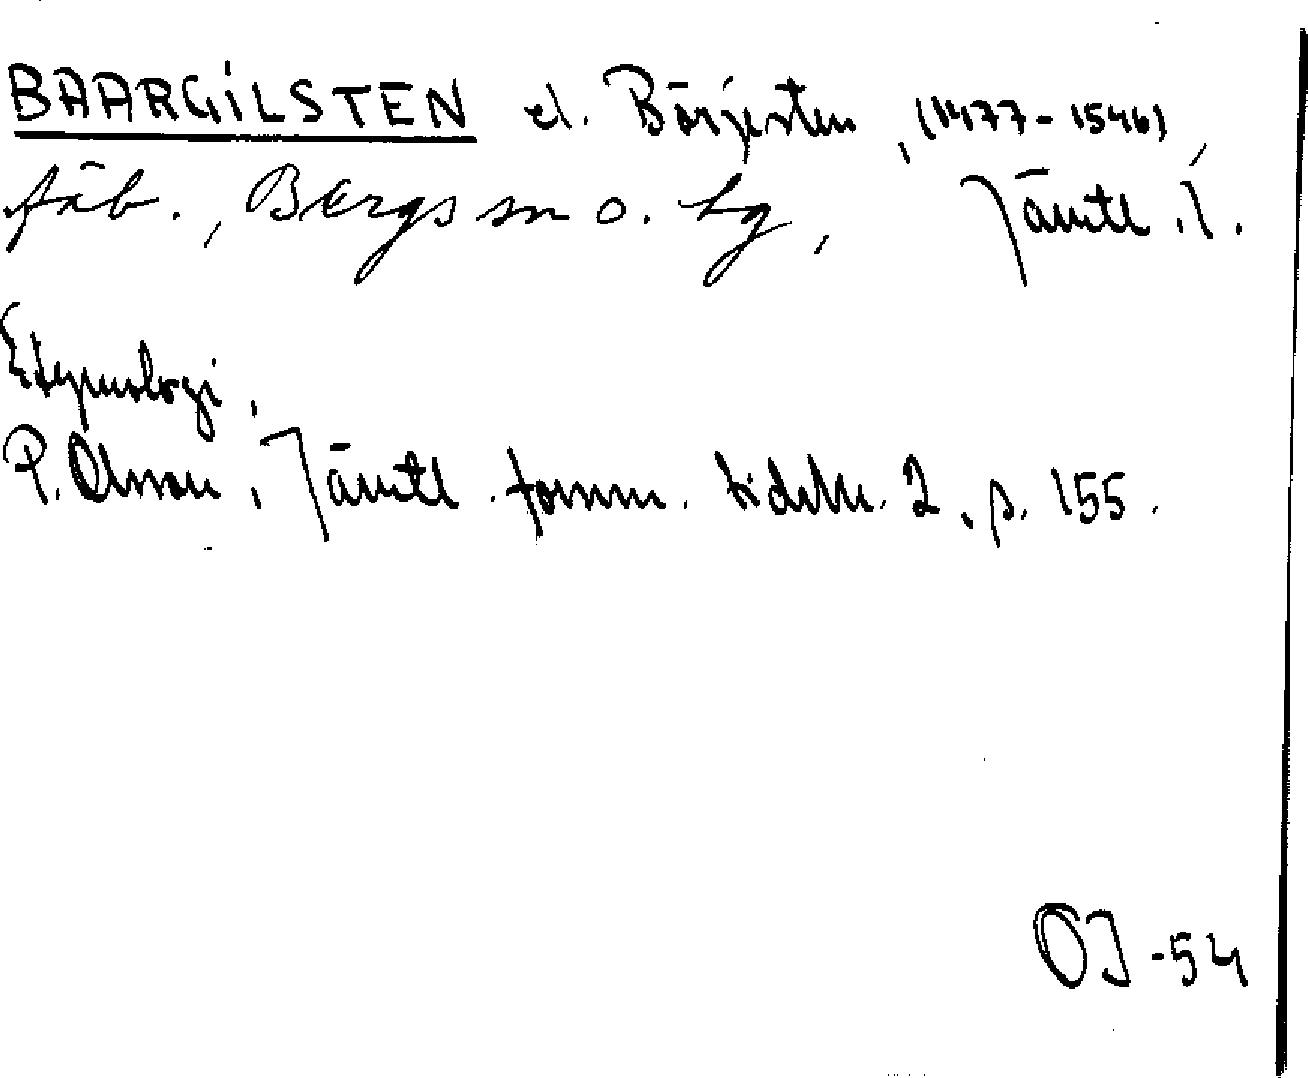 BAARGILSTEN el. Börjesten, (1477-1546),
fäb., Bergs sn o. hg, Jämtl. l.
Etymologi,
P. Olsson, Jämtl. fornm. tidskr. 2, p. 155.
OJ-54